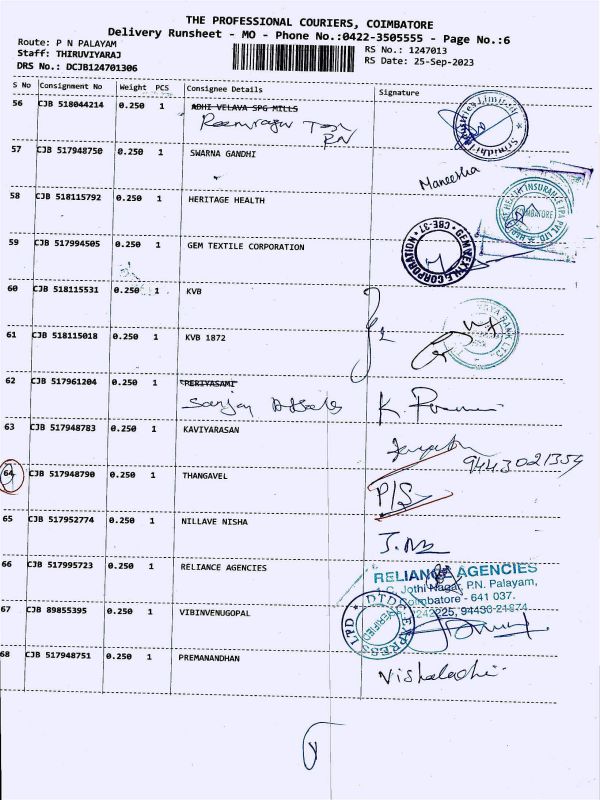 THE PROFESSIONAL COURIERS, COIMBATORE
Delivery Runsheet - MO - Phone No.:0422-3505555 - Page No.:6
Route: P N PALAYAM
Staff: THIRUVIYARAJ
DRS No.: DCJB124701306
RS No.: 1247013
RS Date: 25-Sep-2023
S No Consignment No Weight PCS Consignee Details Signature
56 CJB 518044214 0.250 1 ADHI VELAVA SPG MILLS
57 CJB 517948750 0.250 1 SWARNA GANDHI
Maneesha
58 CJB 518115792 0.250 1 HERITAGE HEALTH
COIMBATORE
59 CJB 517994505 0.250 1 GEM TEXTILE CORPORATION
GEM TEXTILE CORPORATION * CBE-37 *
60 CJB 518115531 0.250 1 KVB
61 CJB 518115018 0.250 1 KVB 1872
62 CJB 517961204 0.250 1 PERIYASAMI
Sanjay
K.
63 CJB 517948783 0.250 1 KAVIYARASAN
9443021354
64 CJB 517948790 0.250 1 THANGAVEL
65 CJB 517952774 0.250 1 NILLAVE NISHA
66 CJB 517995723 0.250 1 RELIANCE AGENCIES
RELIANCE AGENCIES
Jothi Nagar, P.N. Palayam,
Coimbatore - 641 037.
67 CJB 89855395 0.250 1 VIBINVENUGOPAL
DTDC EXPRESS LTD
VERIFIED
68 CJB 517948751 0.250 1 PREMANANDHAN
Vishaladhi